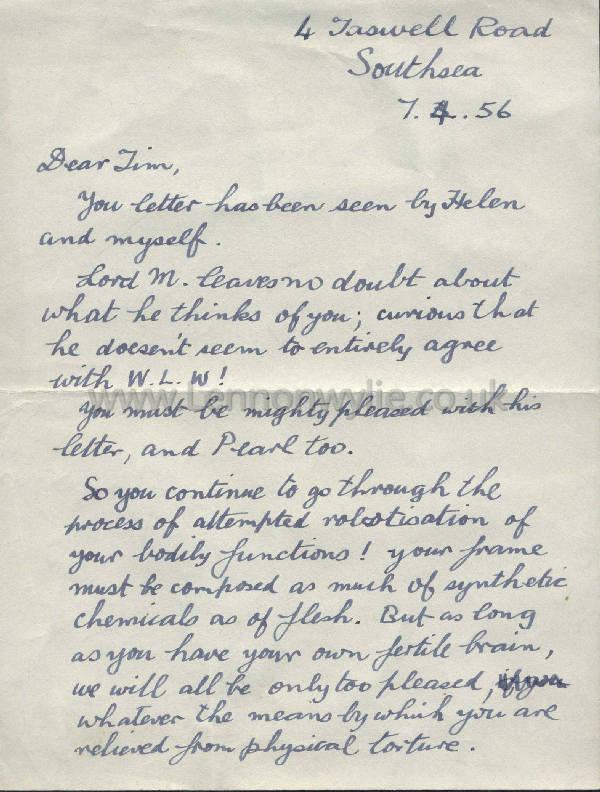 4 Taswell Road
Southsea
7.4.56
Dear Tim,
You letter has been seen by Helen
and myself.
Lord M. leaves no doubt about
what he thinks of you; curious that
he doesen't seem to entirely agree
with W.L.W!
www.Lennonwylie.co.uk
You must be mighty pleased with his
letter, and Pearl too.
So you continue to go through the
process of attempted robotisation of
your bodily functions! your frame
must be composed as much of synthetic
chemicals as of flesh. But as long
as you have your own fertile brain,
we will all be only too pleased,
whatever the means by which you are
relieved from physical torture.